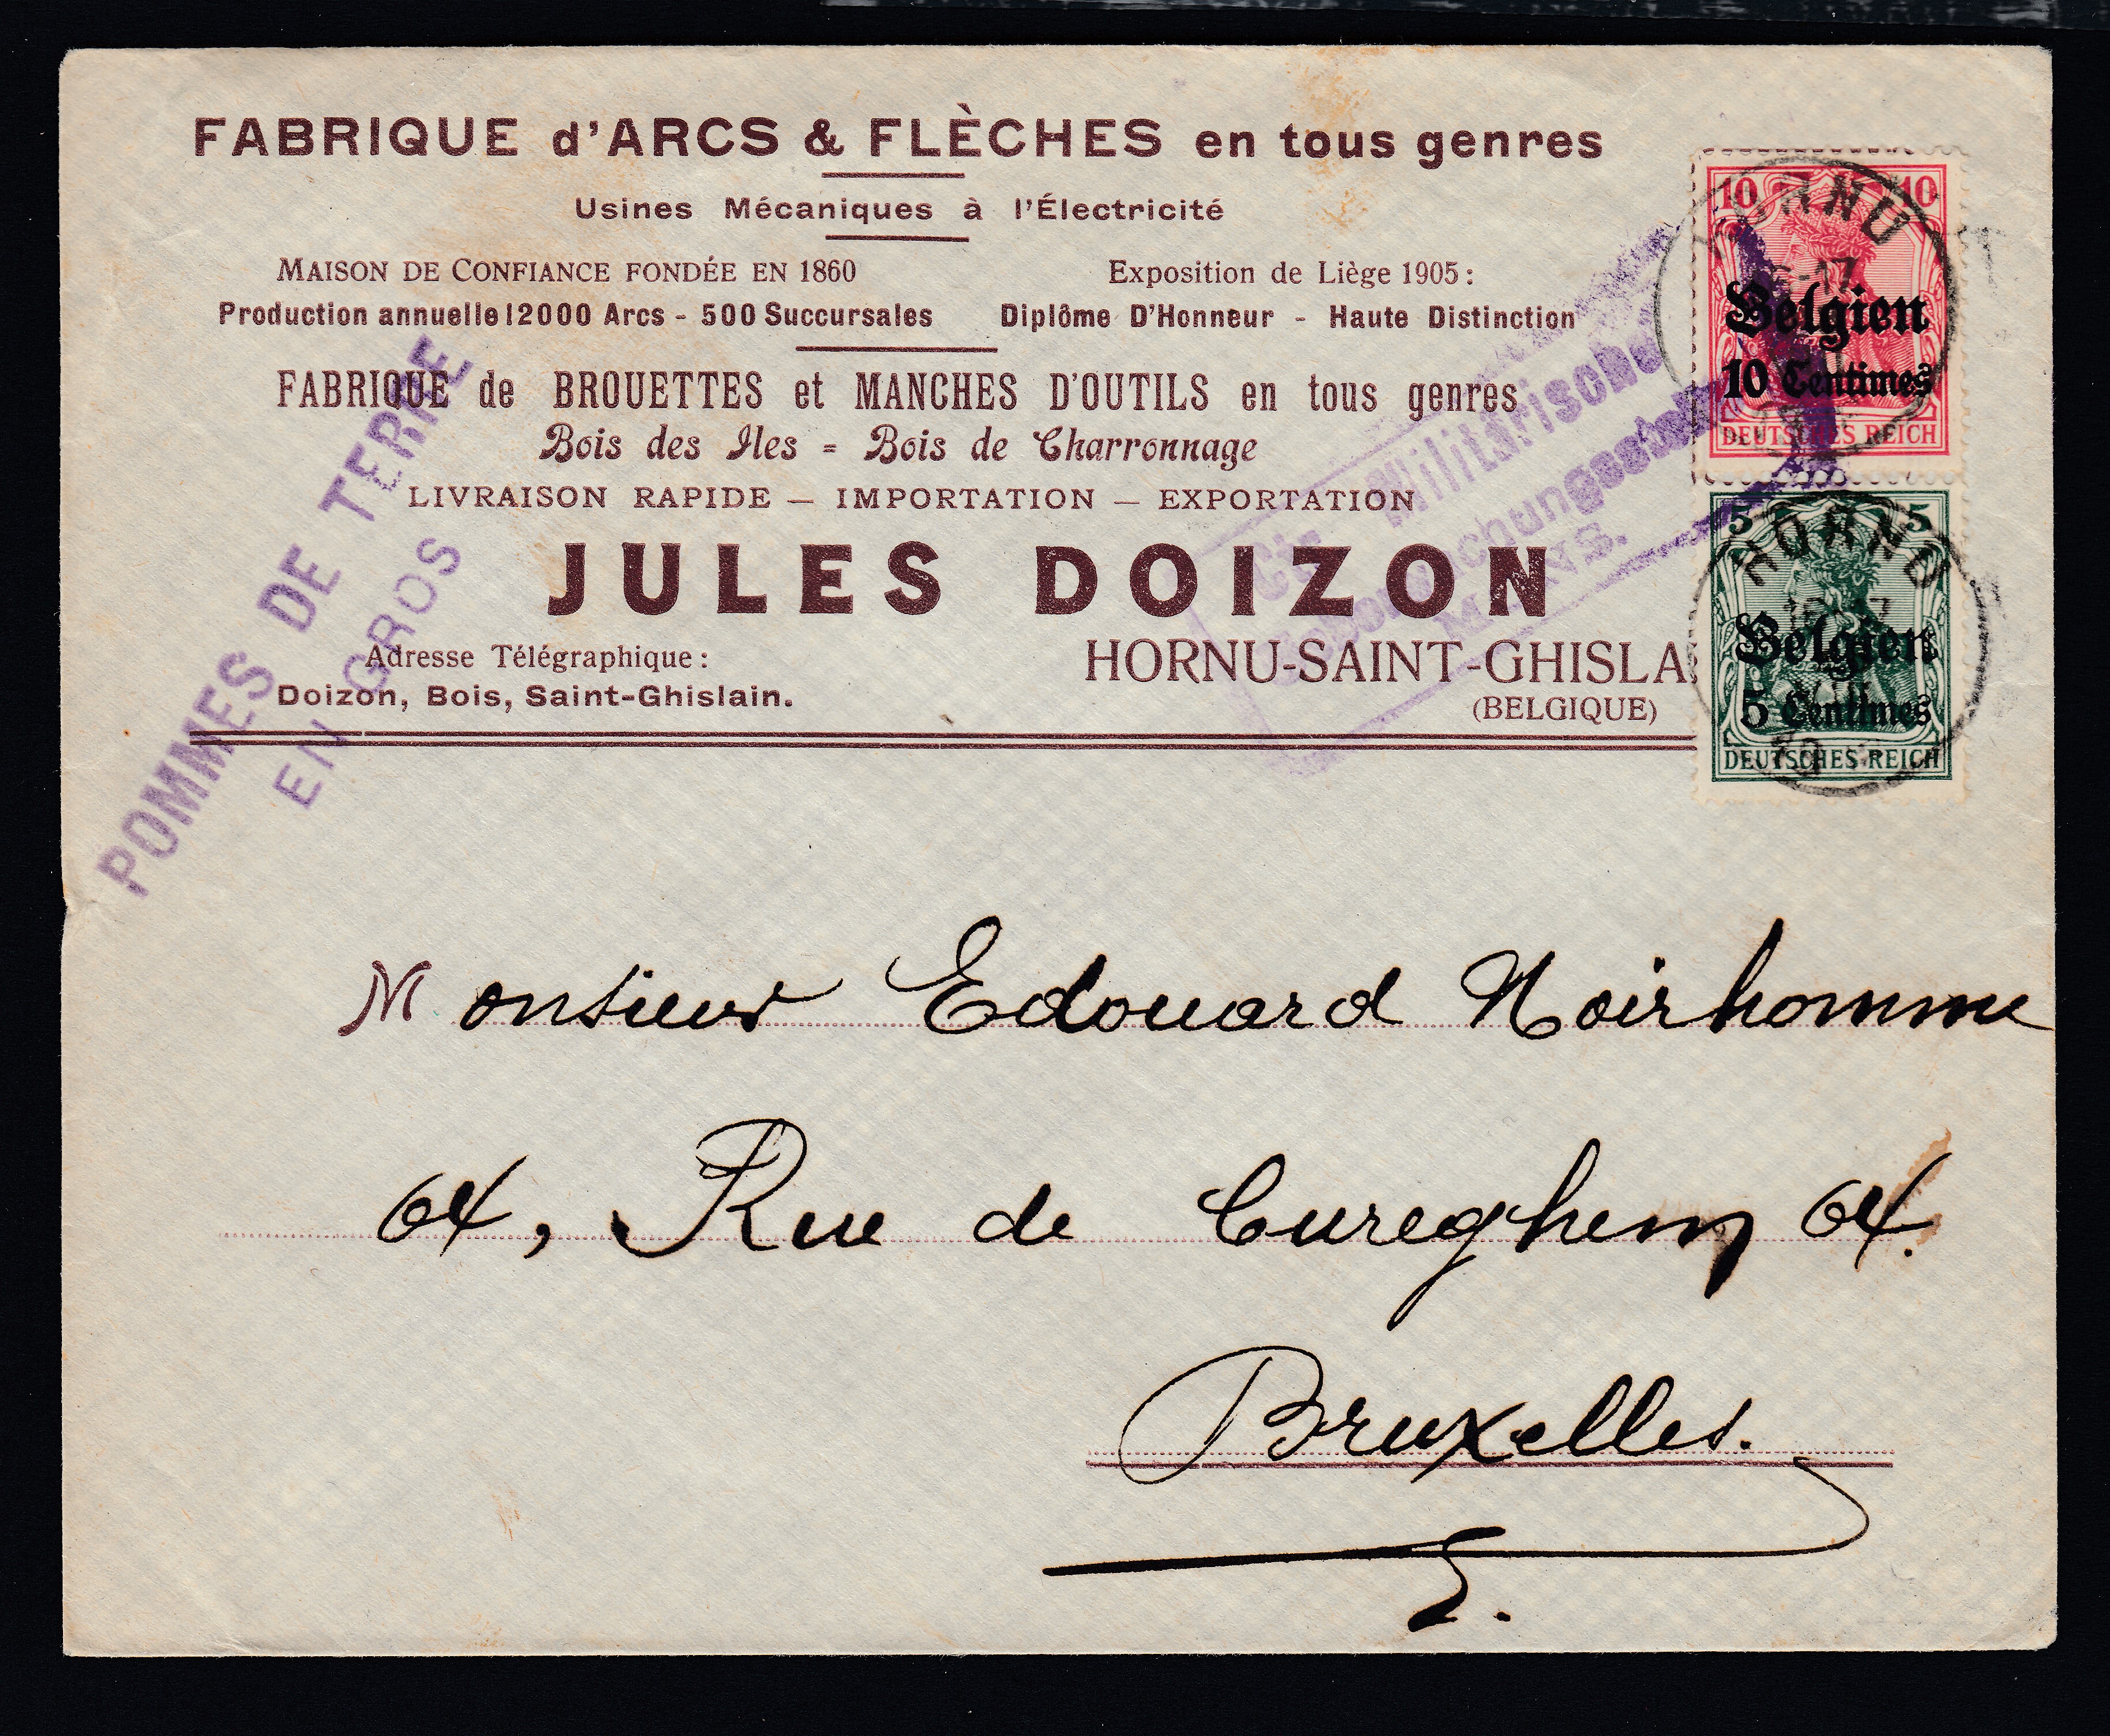 FABRIQUE d'ARCS & FLÈCHES en tous genres
Usines Mécaniques à l'Électricité
MAISON DE CONFIANCE FONDÉE EN 1860
Production annuelle 12000 Arcs - 500 Succursales
Exposition de Liège 1905:
Diplôme D'Honneur - Haute Distinction
FABRIQUE de BROUETTES et MANCHES D'OUTILS en tous genres
Bois des Iles = Bois de Charronnage
LIVRAISON RAPIDE — IMPORTATION — EXPORTATION
JULES DOIZON
Adresse Télégraphique:
Doizon, Bois, Saint-Ghislain.
HORNU-SAINT-GHISLA
(BELGIQUE)
POMMES DE TERRE
EN GROS
Militärische
10 10
HORNU
Belgien
10 Centimes
DEUTSCHES REICH
5 5
HORNU
Belgien
5 Centimes
DEUTSCHES REICH
Monsieur Edouard Noirhomme
64, Rue de Cureghem 64.
Bruxelles.